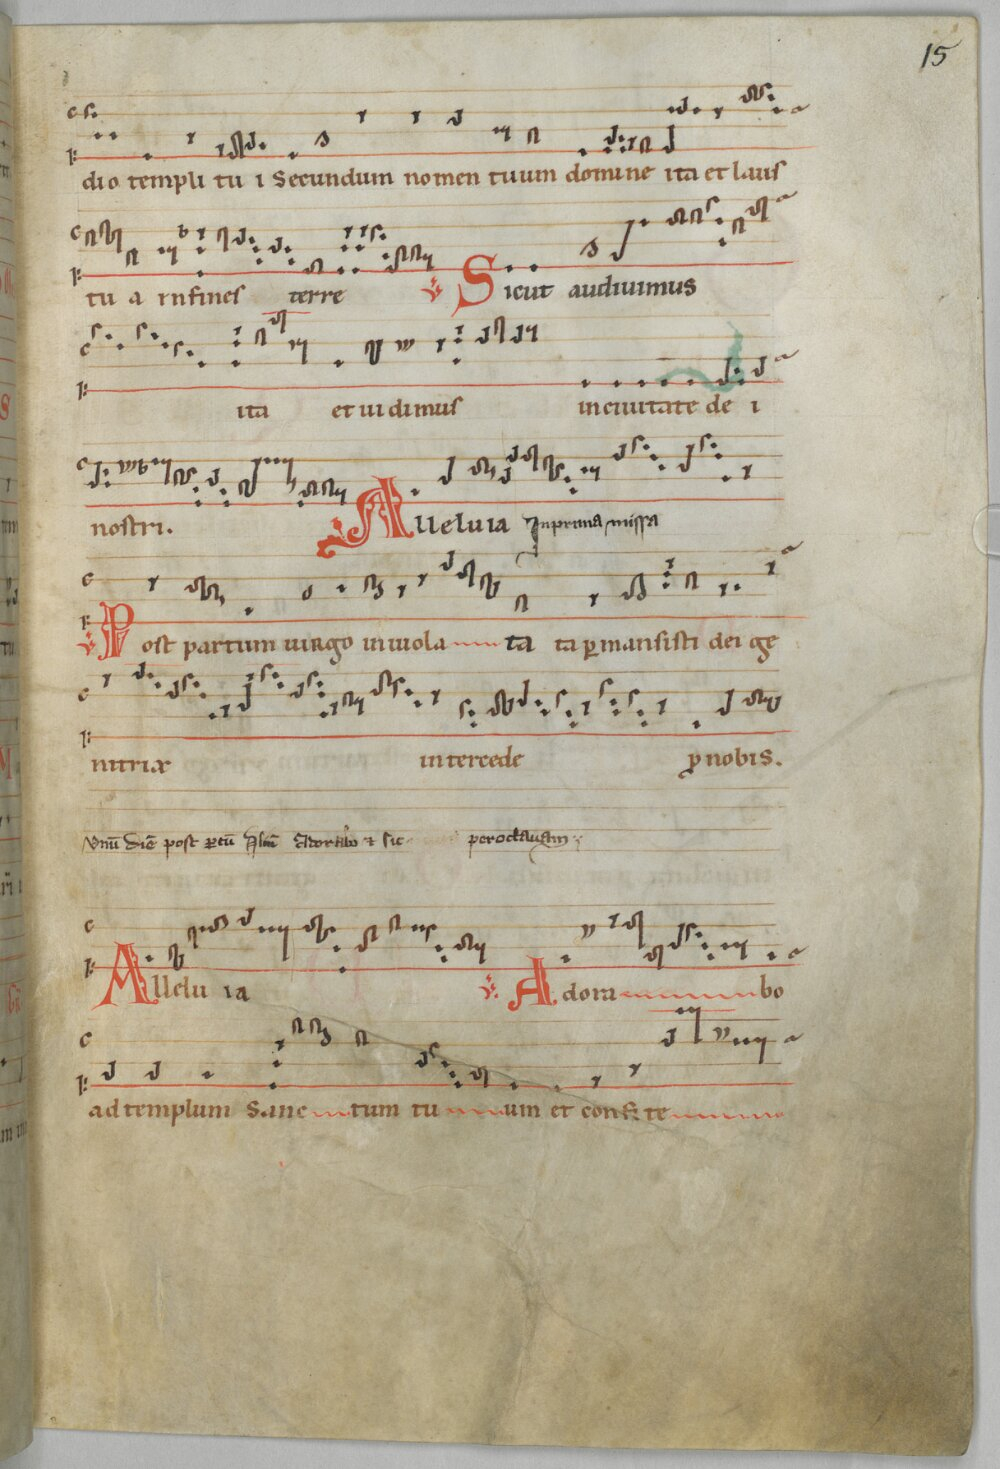 15
dio templi tu i Secundum nomen tuum domine ita et laus
tu a in fines terre Sicut audiuimus
ita et uidimus in ciuitate de i
nostri. Alleluia In prima missa
Post partum uirgo inuiola ta ta ꝑmansisti dei ge
nitrix intercede ꝓ nobis.
post peroctauam
Allelu ia Adora bo
ad templum Sanc tum tu um et confi te